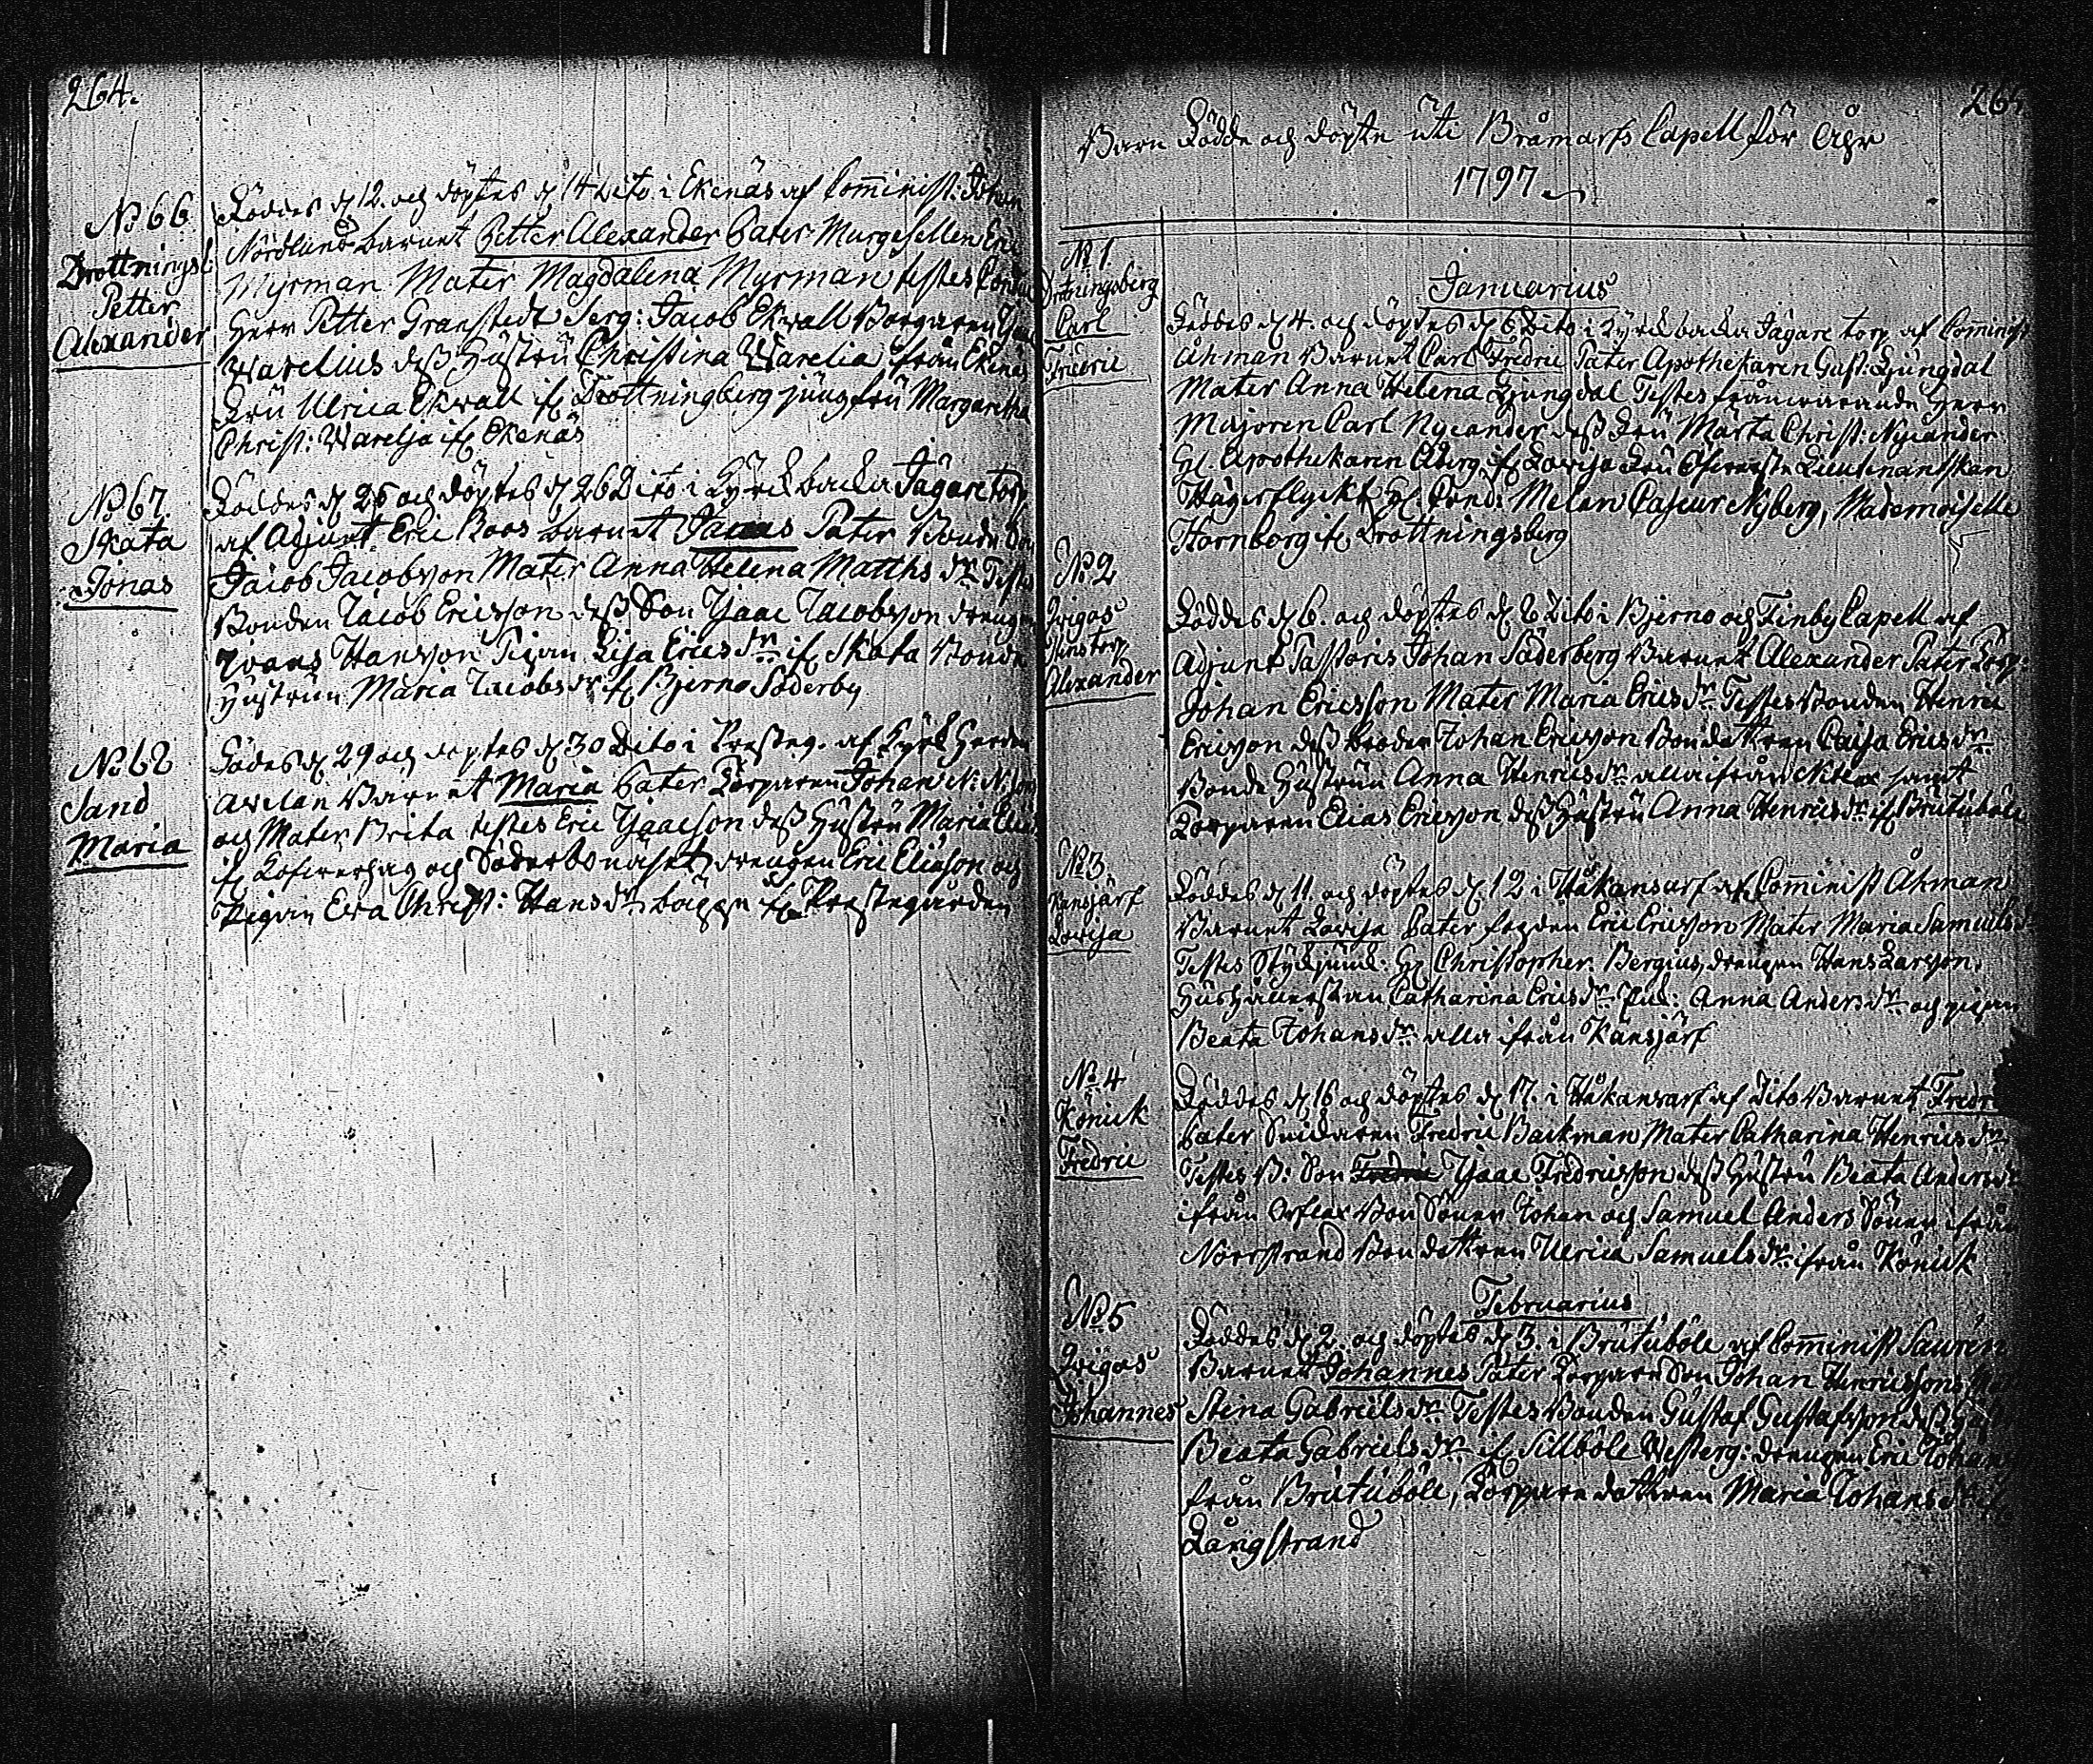 264.
No 66
Drottningsb:
Petter
Alexander
Föddes d 12. och döptes d 14 Dito i Ekenäs af Comminist: Johan
Nordlund barnet Petter Alexander Pater Murgesellen Eric
Myrman Mater Magdalena Myrman testes
Herr Petter Granstedt Serg: Jacob Ekwall Borgaren
Warelius dess Hustru Christina Warelia från Ekenäs
Fru Ulrica Ekwall if Drottningberg jungfru Margaretha
Christ: Warelja if Ekenäs
No 67.
Skata
Jonas
Föddes d 25 och döptes d 26 Dito i Kyrckbacka Jägare torp
af Adjunct Eric Roos barnet Pater Bonde Son
Jacob Jacobsson Mater Anna Helena Matths dr Testes
Bonden Jacob Ericsson dess Son Isaac Jacobsson drengen
Hansson Pigan Lisa Erics dr if Skata Bonde
Hustrun Maria Jacobs dr if Bjerno Söderby
No 68
Sand
Maria
Födes d 29 och döptes d 30 Dito i Presteg. af Kyrck Herden
barnet Maria Pater Torparen Johan N: N: son
och Mater Brita testes Eric Isaacson dess Hustru Maria
if och Söderbonäset drengen Eric Eliason och
Pigan Eva Christ: Hans dr bägge if Prestegården
265
Barn Födde och döpte uti Bråmarfs Capell för Åhr
1797
No 1.
Drottningsberg
Carl
Fridric
Januarius
Föddes d 4. och döptes d 6 Dito i Kyrckbacka Jägare torp af Comminist
Åhman Barnet Carl Fredric Pater Apothekaren Gust: Ljungdal
Mater Anna Helena Ljungdal Testes frånwarande Herr
Majoren Carl Nycander dess Fru Märta Christ: Nycander
H. Apothekaren Åberg if Lovisa Fru Öfverste Lieutenantskan
Hägerflyckt H Cond: Melan Caseur Nyberg, Mademoiselle
Hornborg if Drottningsberg
No 2
Qvigos
Finstorp
Alexander
Föddes d 6. och döptes d 8 Dito i Bjerno och Finby Capell af
Adjunct Pastoris Johan Söderberg Barnet Alexander Pater Torp:
Johan Ericsson Mater Maria Erics dr Testes Bonden Henric
Ericsson dess broder Johan Ericsson Bondottren Caisa Erics dr
Bonde Hustrun Anna Henrics dr alla ifrån Nitlax samt
Torparen Elias Ericsson dess Hustru Anna Henrics dr if Brutuböle
No 3.
Kansjärf
Lovisa
Föddes d 11. och döptes d 12 i Håkansarf af Comminist Åhman
Barnet Lovisa Pater Eric Ericsson Mater Maria Samuels dr
Testes Styckjunck: H Christopher Bergius, drengen Hans Larsson,
Hushållerskan Catharina Erics dr Anna Anders dr och pigan
Beata Johans dr alla ifrån Kansjärf
No 4
Könick
Fredric
Föddes d 16 och döptes d 17. i Håkansarf af Dito Barnet Fredric
Pater Smidaren Fredric Backman Mater Catharina Henrics dr
Testes B: Son Isaac Fredricsson dess Hustru Beata Anders dr
ifrån Bon Söner Johan och Samuel Anders Söner ifrån
Norrstrand Bondottren Ulrica Samuels dr ifrån Könick
Februarius
No 5
Qvigos
Johannes
Föddes d 2. och döptes d 3. i Brutuböle af Comminist Saurén
Barnet Johannes Pater Torpare Son Johan Henricssons
Stina Gabriels dr Testes Bonden Gustaf Gustafsson dess Hust
Beata Gabriels dr if Sillböle Westerg: drengen Eric Johans
från Brutuböle, Torpare dottren Maria Johans dr if
Långstrand